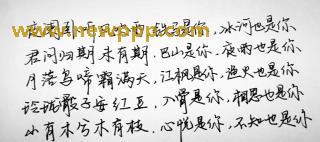 夜阑卧听风吹雨,铁马是你,冰河也是你
www.newppp.com
君问归期未有期,巴山是你,夜雨也是你
月落乌啼霜满天,江枫是你,渔火也是你
玲珑骰子安红豆,入骨是你,相思也是你
山有木兮木有枝,心悦是你,不知也是你